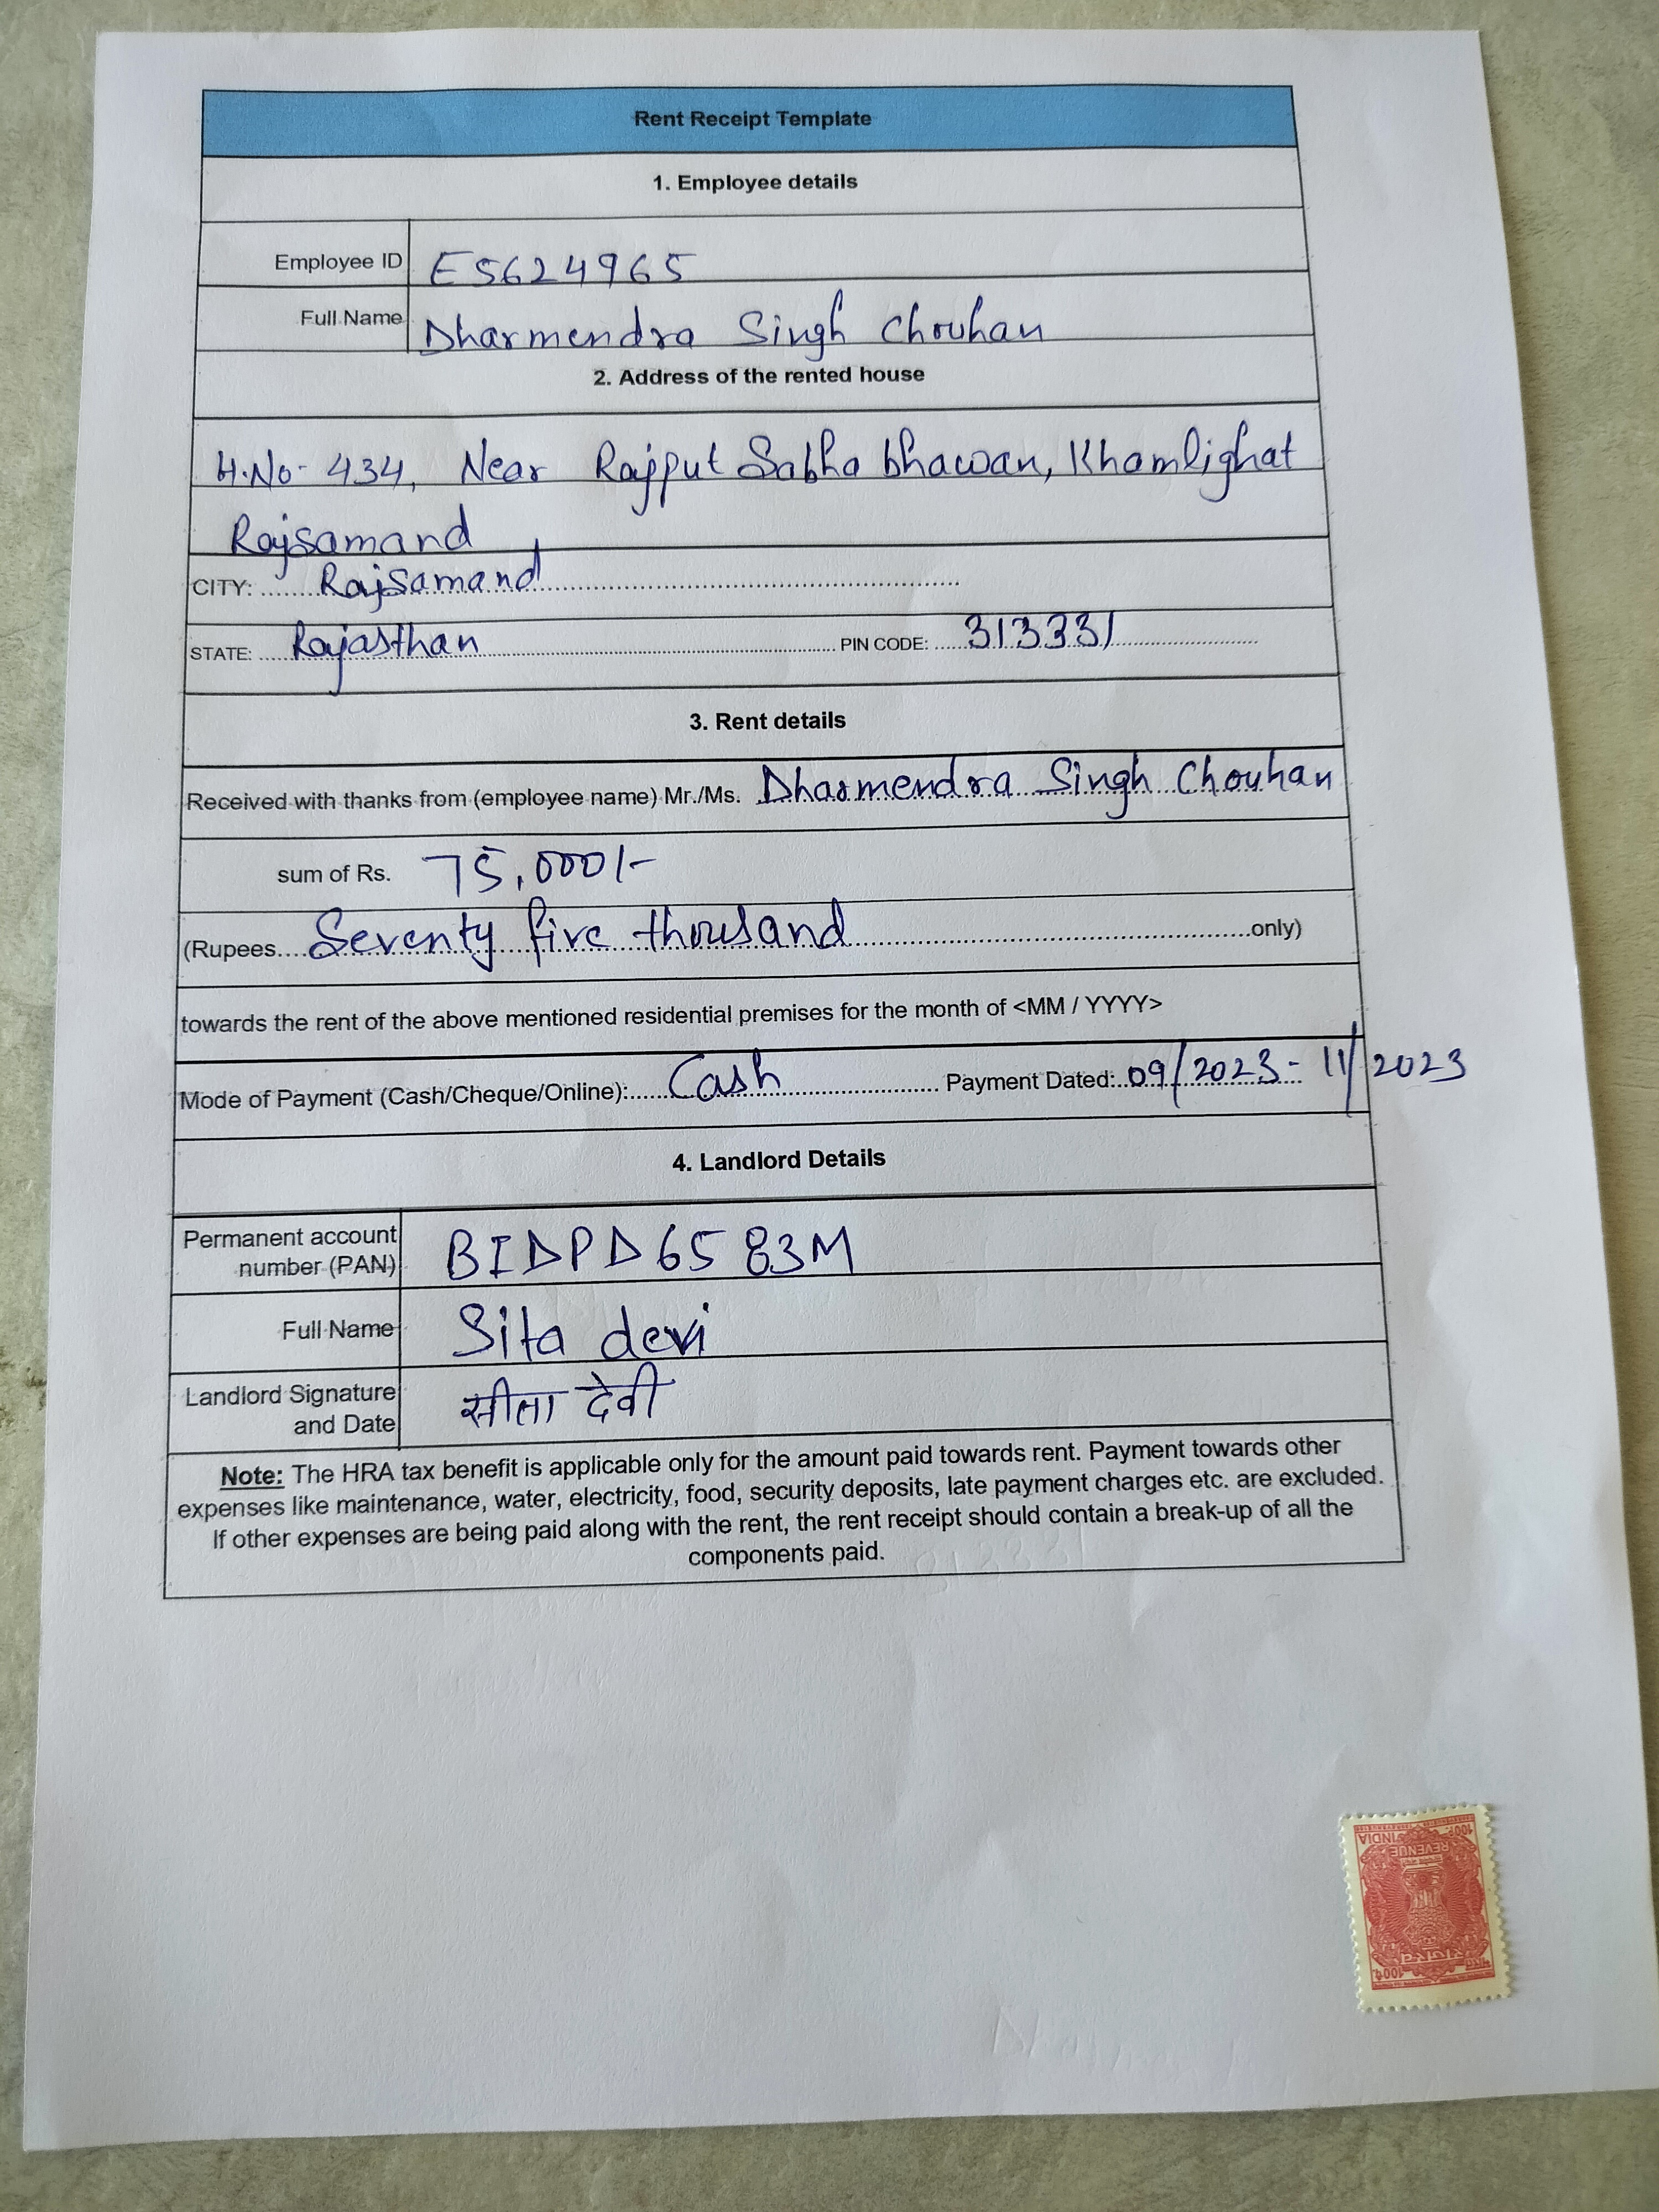 Rent Receipt Template
1. Employee details
Employee ID E5624965
Full Name Dharmendra Singh Chouhan
2. Address of the rented house
H.No- 434, Near Rajput Sabha bhawan, Khamlighat
Rajsamand
CITY: ......Rajsamand......
STATE: ....Rajasthan...... PIN CODE: .....313331......
3. Rent details
Received with thanks from (employee name) Mr./Ms. Dharmendra Singh Chouhan
sum of Rs. 75,000/-
(Rupees....Seventy five thousand......only)
towards the rent of the above mentioned residential premises for the month of <MM / YYYY>
Mode of Payment (Cash/Cheque/Online):......Cash...... Payment Dated:..09/2023- 11/2023
4. Landlord Details
Permanent account
number (PAN) BIDPD6583M
Full Name Sita devi
Landlord Signature
and Date सीता देवी
Note: The HRA tax benefit is applicable only for the amount paid towards rent. Payment towards other
expenses like maintenance, water, electricity, food, security deposits, late payment charges etc. are excluded.
If other expenses are being paid along with the rent, the rent receipt should contain a break-up of all the
components paid.
100P. INDIA
REVENUE